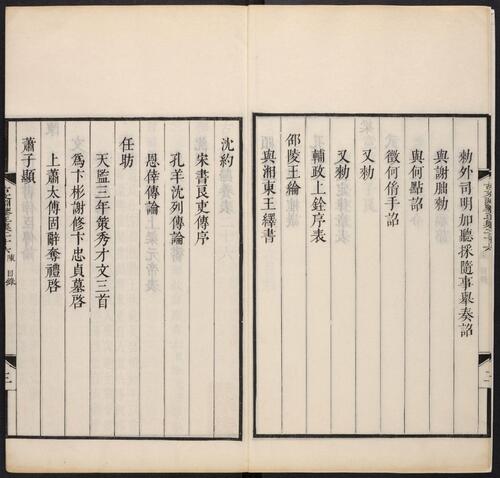 勑外司明加聽採隨事舉奏詔
與謝朏勑
與何點詔
徵何脩手詔
又勑
又勑
輔政上銓序表
邵陵王綸
與湘東王繹書
沈約
宋書良吏傳序
孔羊沈列傳論
恩倖傳論
任昉
天監三年策秀才文三首
爲卞彬謝修卞忠貞墓啓
上蕭太傅固辭奪禮啓
蕭子顯
目錄
三